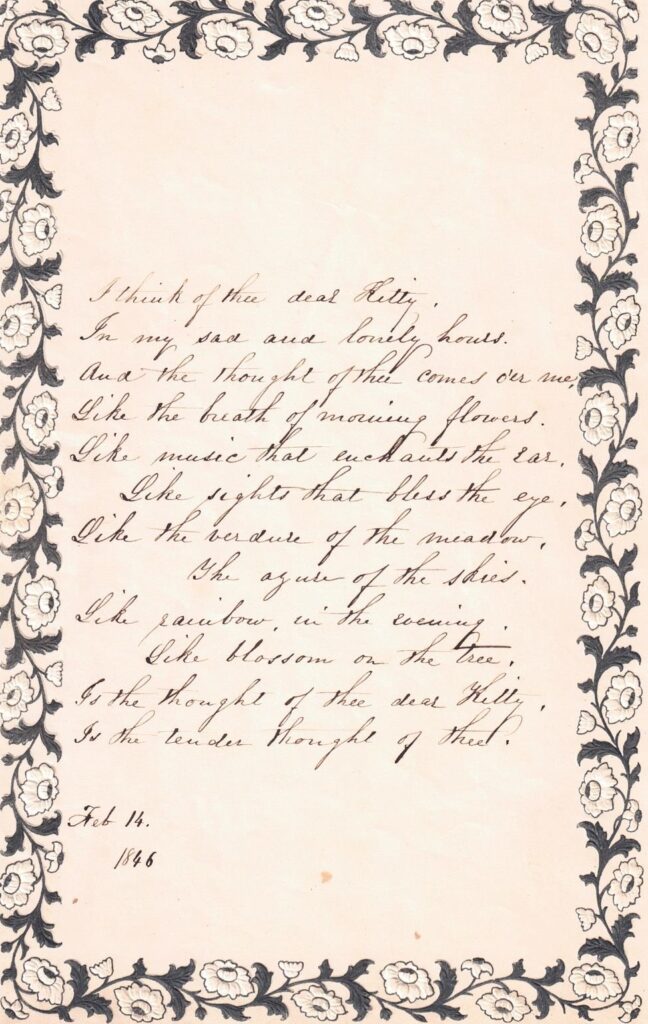 I think of thee dear Kitty,
In my sad and lonely hours.
And the thought of thee comes o'er me,
Like the breath of morning flowers.
Like music that enchants the ear,
Like sights that bless the eye,
Like the verdure of the meadow,
The azure of the skies.
Like rainbow, in the evening,
Like blossom on the tree,
Is the thought of thee dear Kitty,
Is the tender thought of thee.
Feb 14.
1846